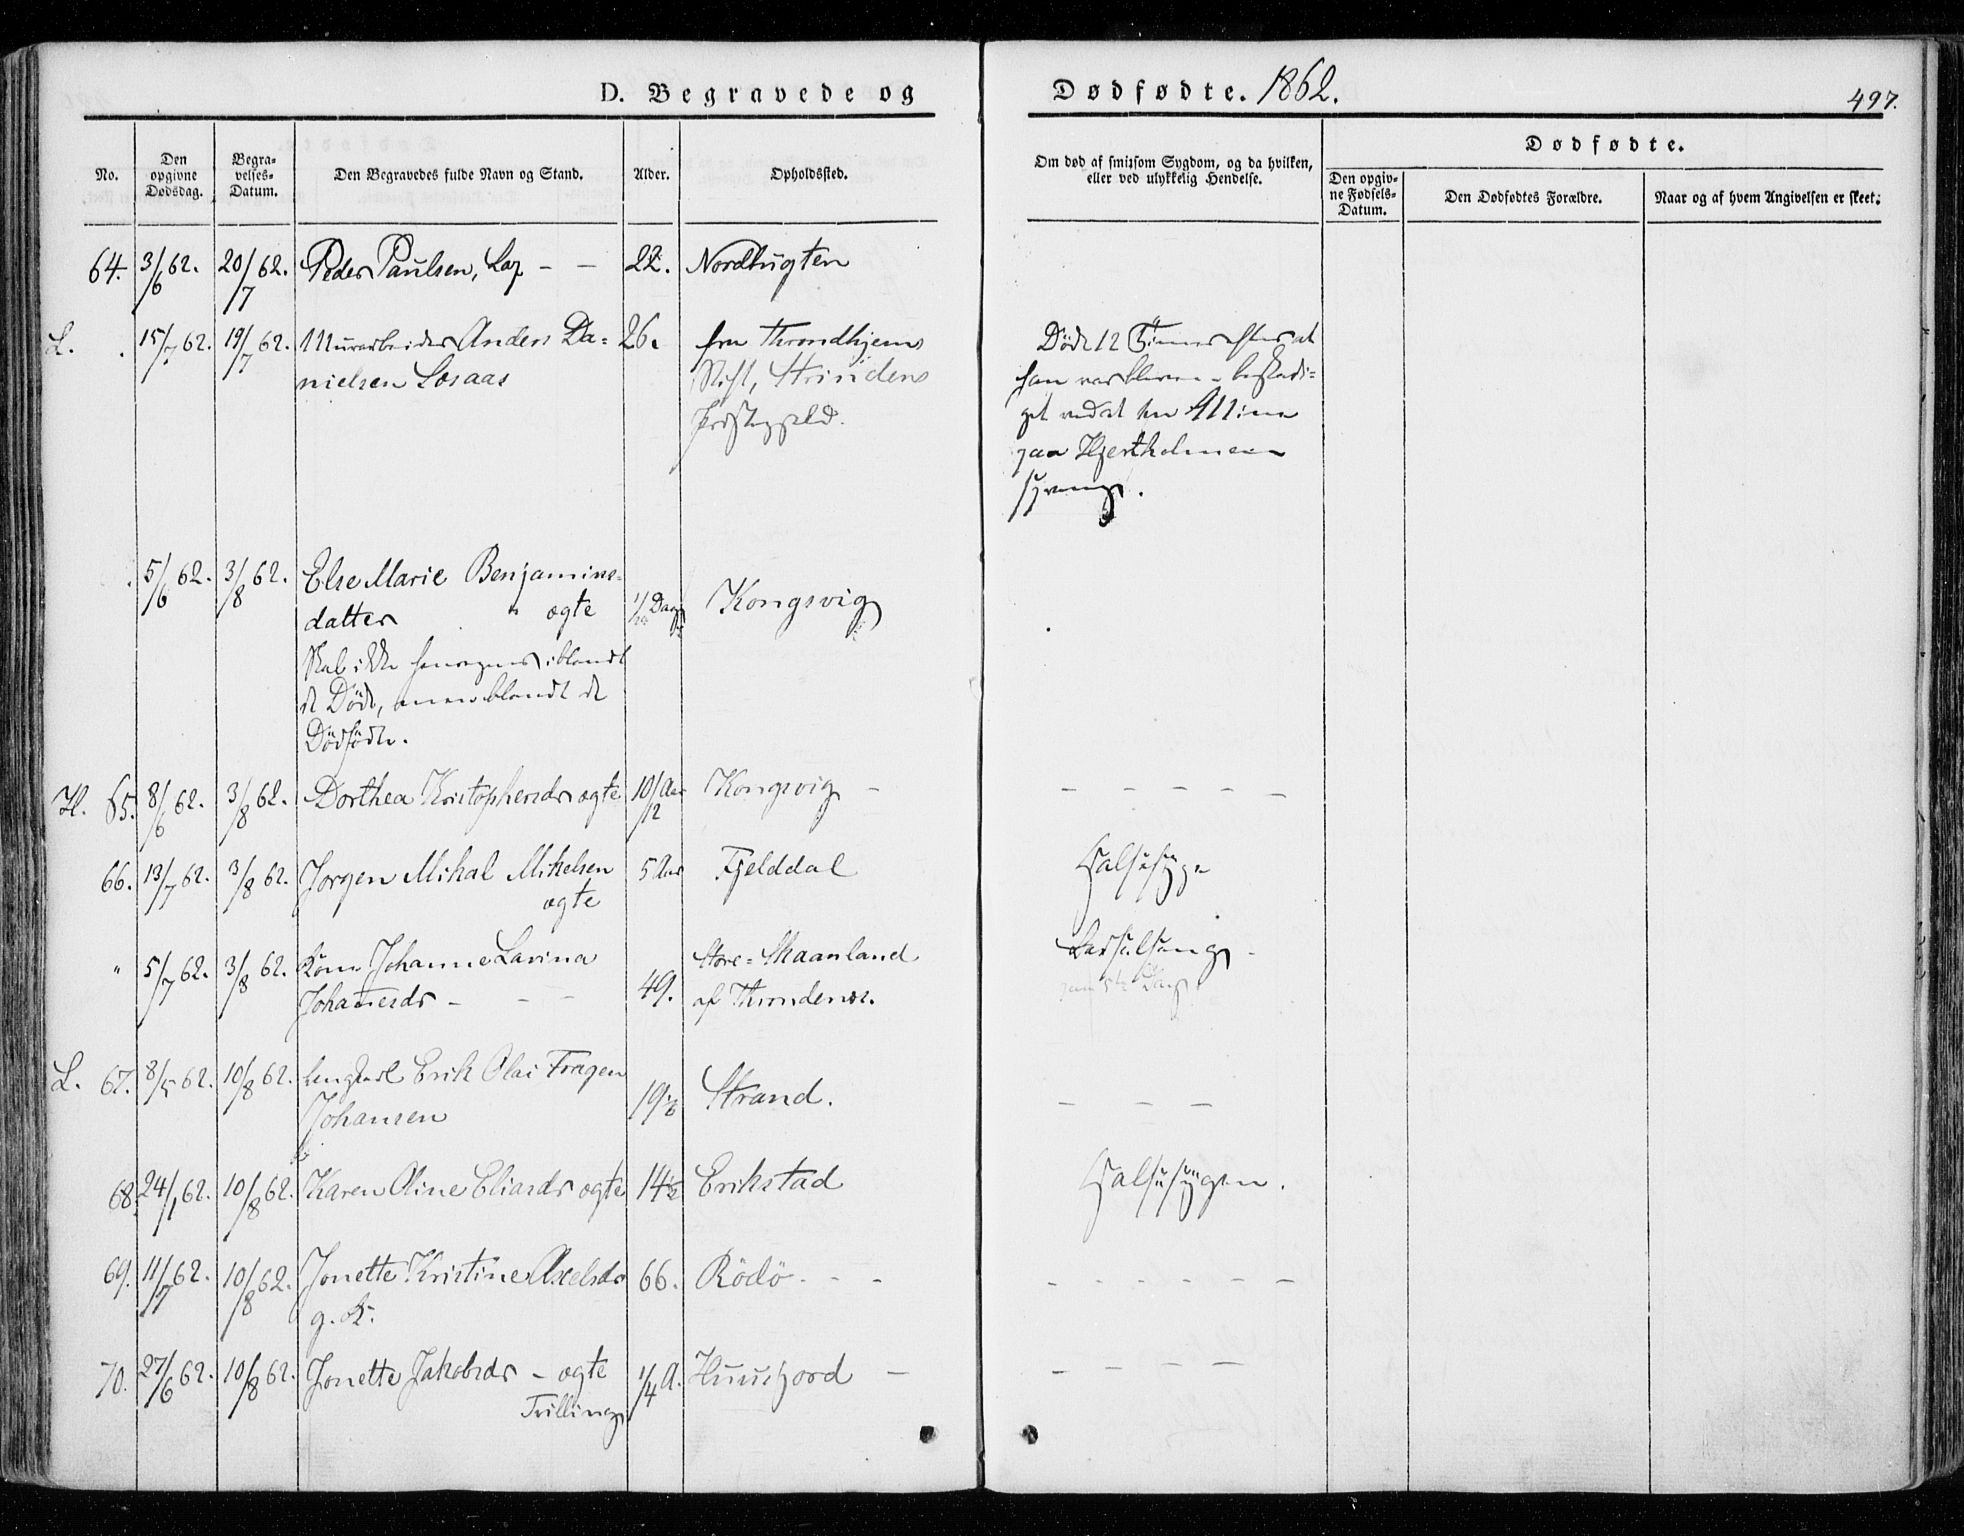 D. Begravede og
Dødfødte. 1862.
497.
No.
Den opgivne Dødsdag.
Begravelses-Datum.
Den Begravedes fulde Navn og Stand.
Alder.
Opholdssted.
Om død af smitsom Sygdom, og da hvilken, eller ved ulykkelig Hendelse.
Dødfødte.
Den opgivne Fødsels-Datum.
Den Dødfødtes Forældre.
Naar og af hvem Angivelsen er skeet.
64. 3/6 62. 20/7 62. Peder Paulsen, Lap - - 22. Nordbugten
L. 15/7 62. 19/7 62. Anders Da= 26. fra Throndhjems Døde 12 Timer efter at
nielsen Losaas Stift, Strindens han var bleven beskadi=
Præstegjeld. get ved at en Mine
paa Hjertholmen
sprang.
5/6 62. 3/8 62. Else Marie Benjamins=
datter ægte 1/2 Dag Kongsvig
Skal ikke henregnes iblandt
de Døde, men blandt de
Dödfödte.
H. 65. 8/6 62. 3/8 62. Dorthea Kristophersdr ægte 10/12 Aar Kongsvig - - - - - -
66. 13/7 62. 3/8 62. Jorgen Mihal Mikelsen 5 Aar Fjelddal Halssyge
ægte
" 5/7 62. 3/8 62. Kone Johanne Lavina Store=Skaanland Barselseng -
Johannesdr - - - 49. af Throndenes. Dag
L. 67. 8/5 62. 10/8 62. Ungkarl Erik Olai
Johansen 19 1/2 Strand. - - -
68. 24/1 62. 10/8 62. Karen Oline Eliasdr ægte 14 1/2 Erikstad Halssygen.
69. 11/7 62. 10/8 62. Jonette Kristine Axelsdr 66. Rödö - - - - - - - -
g. K.
70. 27/6 62. 10/8 62. Jonette Jakobsdr - ægte 1/4 A. Huusfjord - - - - -
Trilling